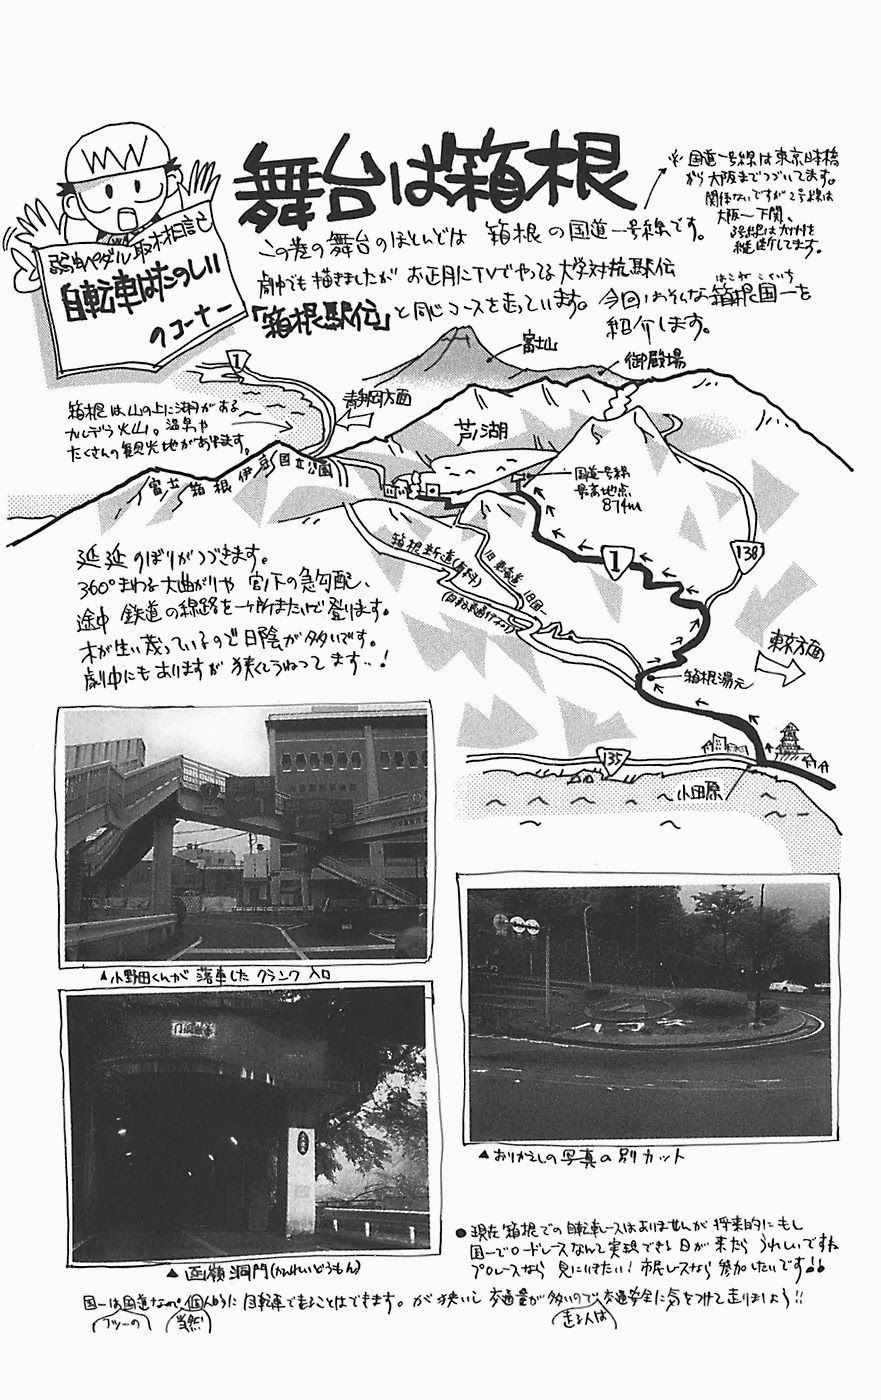 弱虫ペダル取材日記
自転車はたのしい
のコーナー
舞台は箱根
※国道一号線は東京日本橋
から大阪までつづいてます。
関係ないですが2号線は
大阪〜下関、
3号線は九州を
縦断してます。
この巻の舞台のほとんどは 箱根の国道一号線です。
劇中でも描きましたが お正月にTVでやってる大学対抗駅伝
「箱根駅伝」と同じコースを走っています。今回はそんな箱根国一を
はこね こくいち
紹介します。
1
富士山
御殿場
静岡方面
箱根は山の上に湖がある
カルデラ火山。温泉や
たくさんの観光地があります。
芦ノ湖
富士箱根伊豆国立公園
国道一号線
最高地点
874m
箱根新道(有料)
(自転車通行不可)
旧東海道 旧国一
1
138
東京方面
箱根湯元
135
小田原
延延のぼりがつづきます。
360°まわる大曲がりや 宮ノ下の急勾配、
途中 鉄道の線路を一ヶ所またいで登ります。
木が生い茂っているので日陰が多いです。
劇中にもありますが 狭くてうねってます…!
▲小野田くんが落車したクランク入口
▲おりかえしの写真の別カット
▲函嶺洞門(かんれいどうもん)
●現在 箱根での自転車レースはありませんが 将来的にもし
国一でロードレースなんて実現できる日が来たら うれしいですね
プロレースなら 見にいきたい! 市民レースなら 参加したいです
国一は国道なので、個人的に自転車で走ることはできます。が狭いし 交通量が多いので 交通安全に気をつけて走りましょう!!
フツーの
当然
走る人は